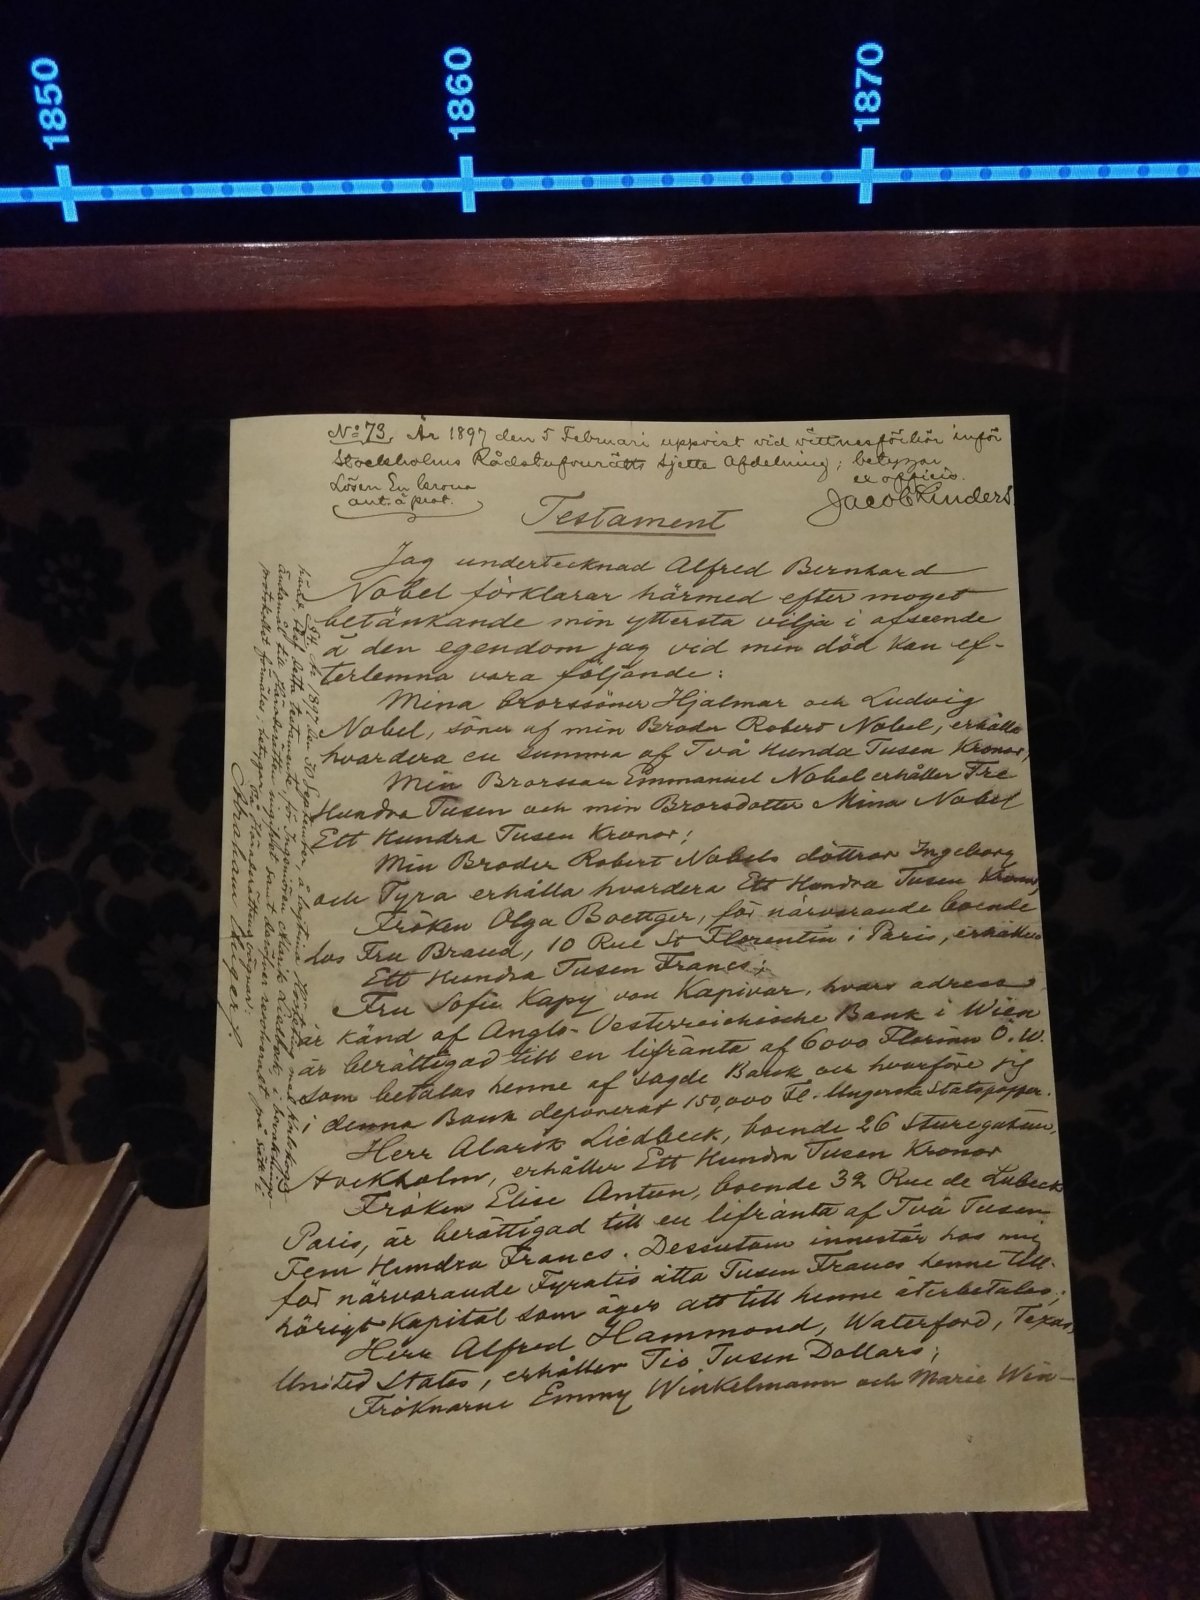 1850
1860
1870
No 73. År 1897 den 5 Februari uppvist vid vittnesförhör inför
Stockholms Rådstufvurätts sjette Afdelning; betygar
ex officio.
Lösen En krona
ant. å prot.
Testament
Jag undertecknad Alfred Bernhard
Nobel förklarar härmed efter moget
betänkande min yttersta vilja i afseende
å den egendom jag vid min död kan ef-
terlemna vara följande:
Mina brorssöner Hjalmar och Ludvig
Nobel, söner af min Broder Robert Nobel, erhålla
hvardera en summa af Två Hundra Tusen Kronor;
Min Brorsson Emmanuel Nobel erhåller Tre
Hundra Tusen och min Brorsdotter Mina Nobel
Ett Hundra Tusen Kronor;
Min Broder Robert Nobels döttrar Ingeborg
och Tyra erhålla hvardera Ett Hundra Tusen Kronor;
Fröken Olga Boettger, för närvarande boende
hos Fru Brand, 10 Rue St Florentin i Paris, erhåller
Ett Hundra Tusen Francs;
Fru Sofie Kapy von Kapivar, hvars adress
är känd af Anglo-Oesterreichische Bank i Wien
är berättigad till en lifränta af 6000 Florins Ö.W.
som betalas henne af sagde Bank och hvarföre jag
i denna Bank deponerat 150,000 Fl. Ungerska Statspapper.
Herr Alarik Liedbeck, boende 26 Sturegatan,
Stockholm, erhåller Ett Hundra Tusen Kronor
Fröken Elise Antun, boende 32 Rue de Lubeck
Paris, är berättigad till en lifränta af Två Tusen
Fem Hundra Francs. Dessutom innestår hos mig
för närvarande Fyratio åtta Tusen Francs henne till-
hörigt Kapital som äger att till henne återbetalas;
Herr Alfred Hammond, Waterford, Texas,
United States, erhåller Tio Tusen Dollars;
Fröknarne Emmy Winkelmann och Marie Win-
År 1897 den 30 September, å lagtima
detta testamente, för Ingeniören Alarik Liedbeck,
till Häradsrätten ingifvet samt
protokollet förmäler; betygar